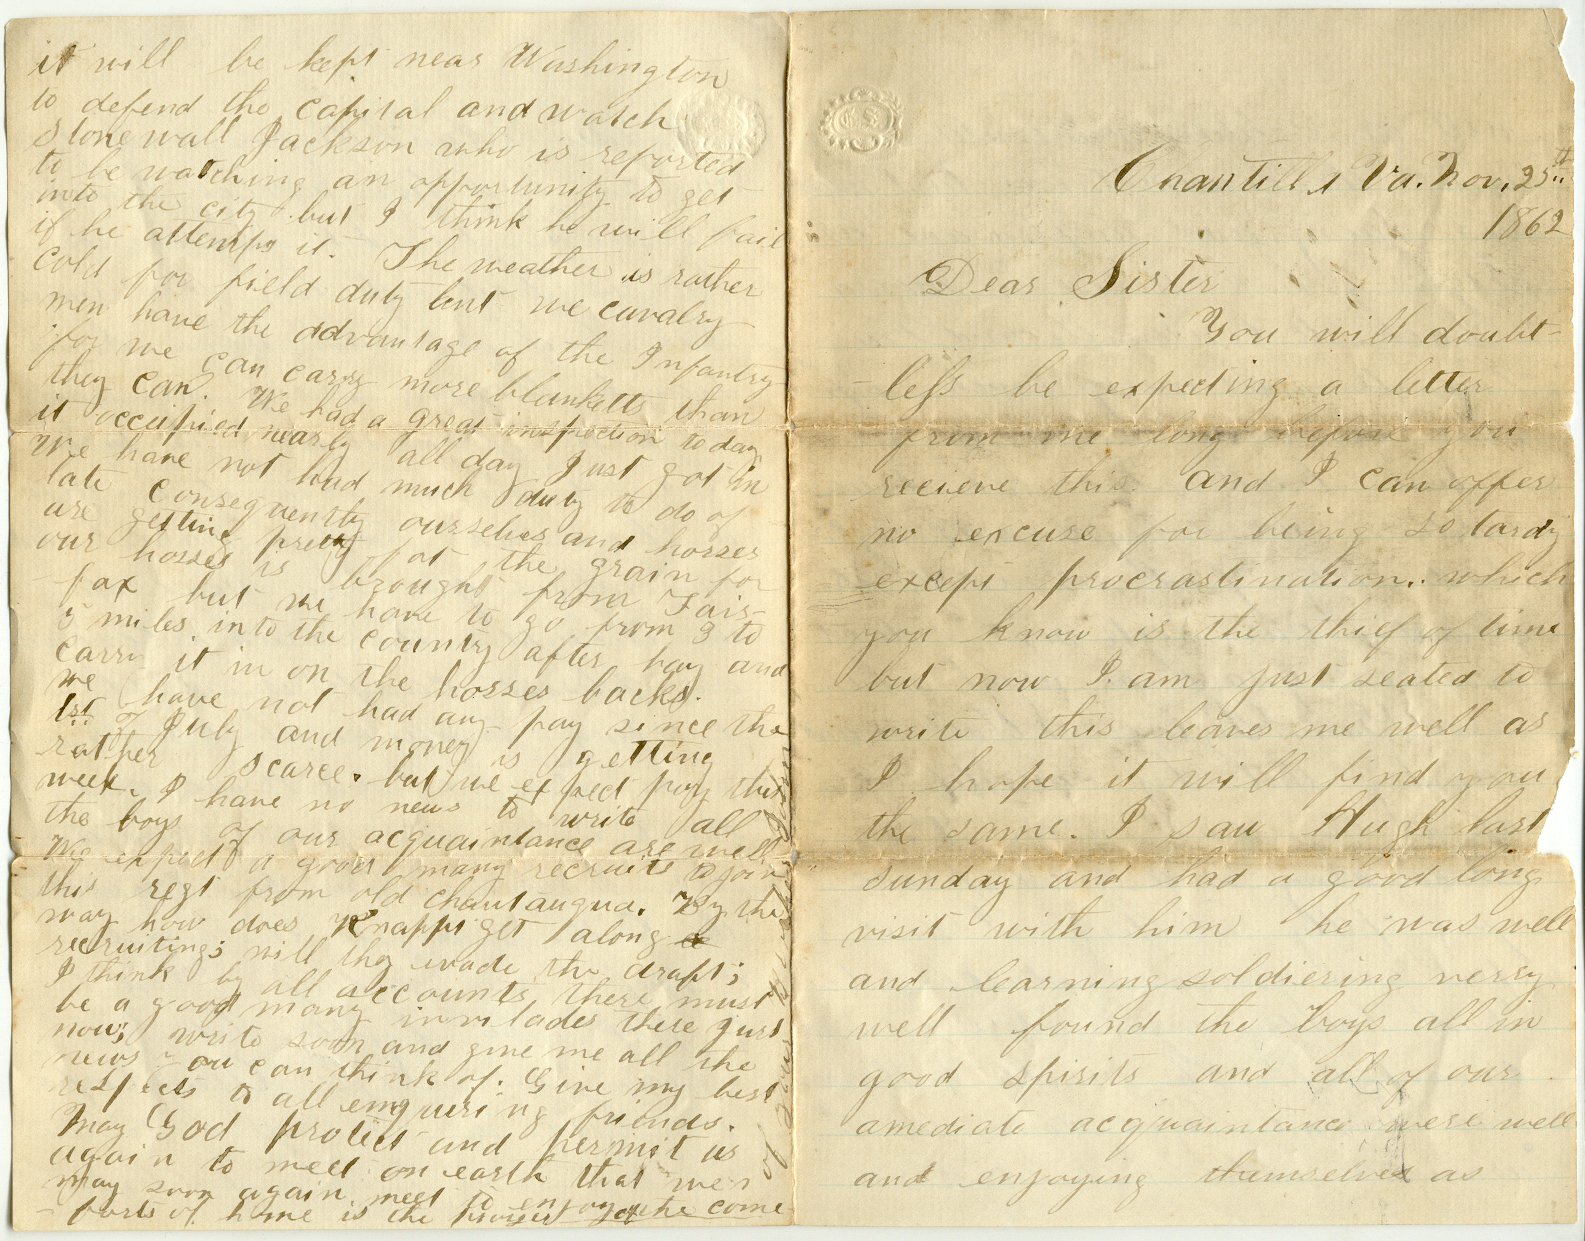 Chantilla Va. Nov. 25th
1862
Dear Sister
You will doubt-
less be expecting a letter
from me long before you
recieve this and I can offer
no excuse for being so tardy
except procrastination. which
you know is the thief of time
but now I am just seated to
write this leaves me well as
I hope it will find you
the same. I saw Hugh last
sunday and had a good long
visit with him he was well
and learning soldiering verry
well found the boys all in
good spirits and all of our
amediate acquaintance were well
and enjoying themselves as
it will be kept near Washington
to defend the capital and watch
Stonewall Jackson who is reported
to be watching an opportunity to get
into the city but I think he will fail
if he attemps it. The weather is rather
cold for field duty but we cavalry
men have the advantage of the Infantry
for we can carry more blanketts than
they can. We had a great inspection today
it occupied nearly all day Just got in
We have not had much duty to do of
late consequently ourselves and horses
are getting pretty fat the grain for
our horses is brought from Fair-
fax but we have to go from 3 to
5 miles into the country after hay and
carry it in on the horses backs.
we have not had any pay since the
1st of July and money is getting
rather scarce. but we expect pay this
week. I have no news to write all
the boys of our acquaintance are well
We expect a good many recruits to join
this regt from old chautauqua. By the
way how does Knapp get along
recruiting; will they evade the draft;
I think by all accounts there must
be a good many invilades there just
now; write soon and give me all the
news you can think of. Give my best
respects to all enquering friends.
May God protect and permit us
again to meet on earth that we
may soon again meet to enjoy the com-
forts of home is the